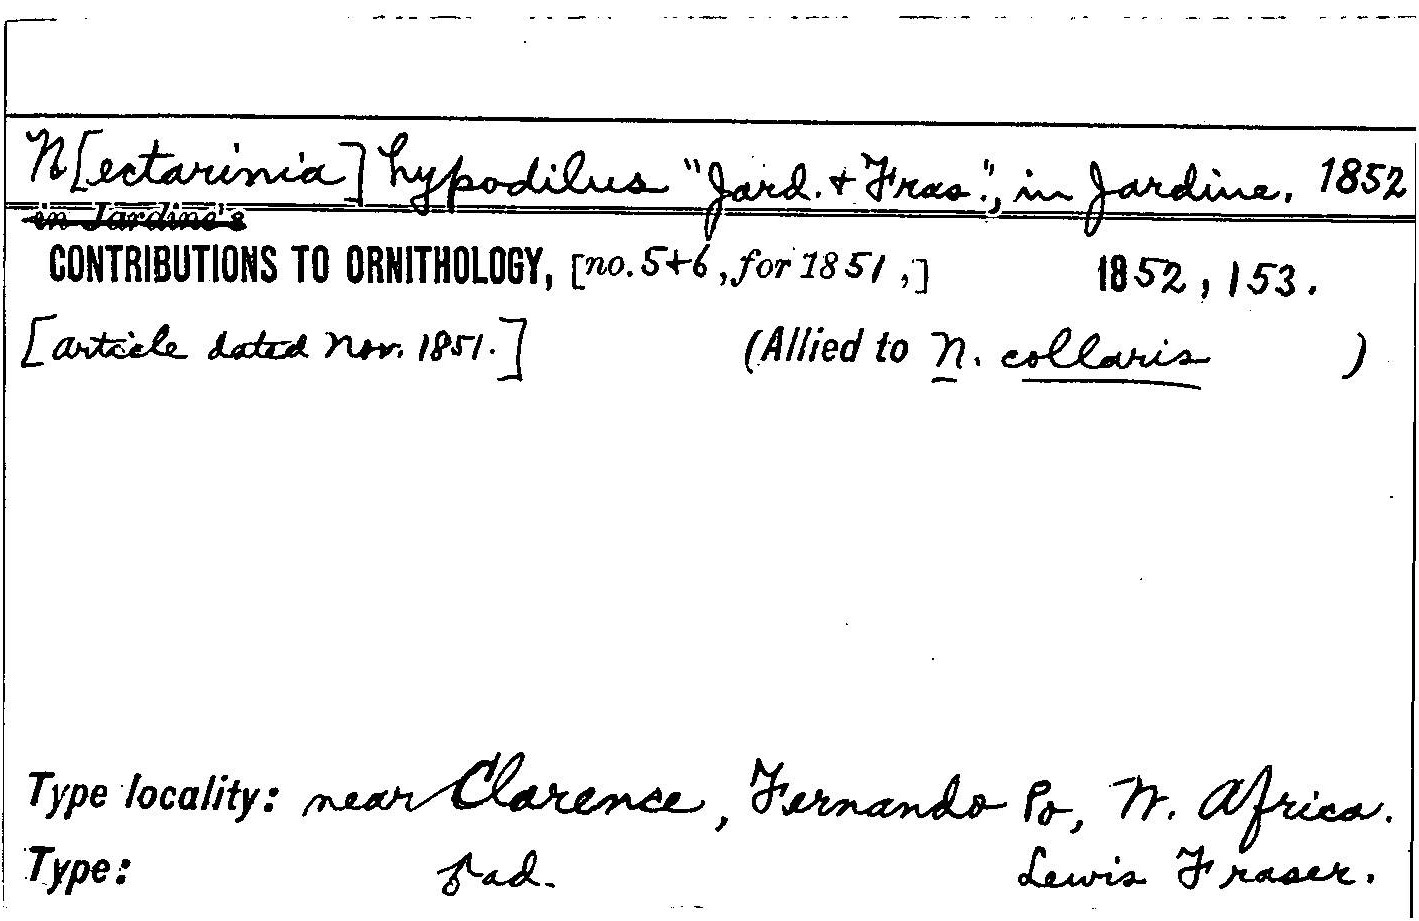 N[ectarinia] hypodilus "Jard. + Fras.", in Jardine. 1852
in Jardine's
CONTRIBUTIONS TO ORNITHOLOGY, [no. 5+6, for 1851,] 1852, 153.
[article dated Nov. 1851.] (Allied to N. collaris )
Type locality: near Clarence, Fernando Po, W. Africa.
Type: ad. Lewis Fraser.